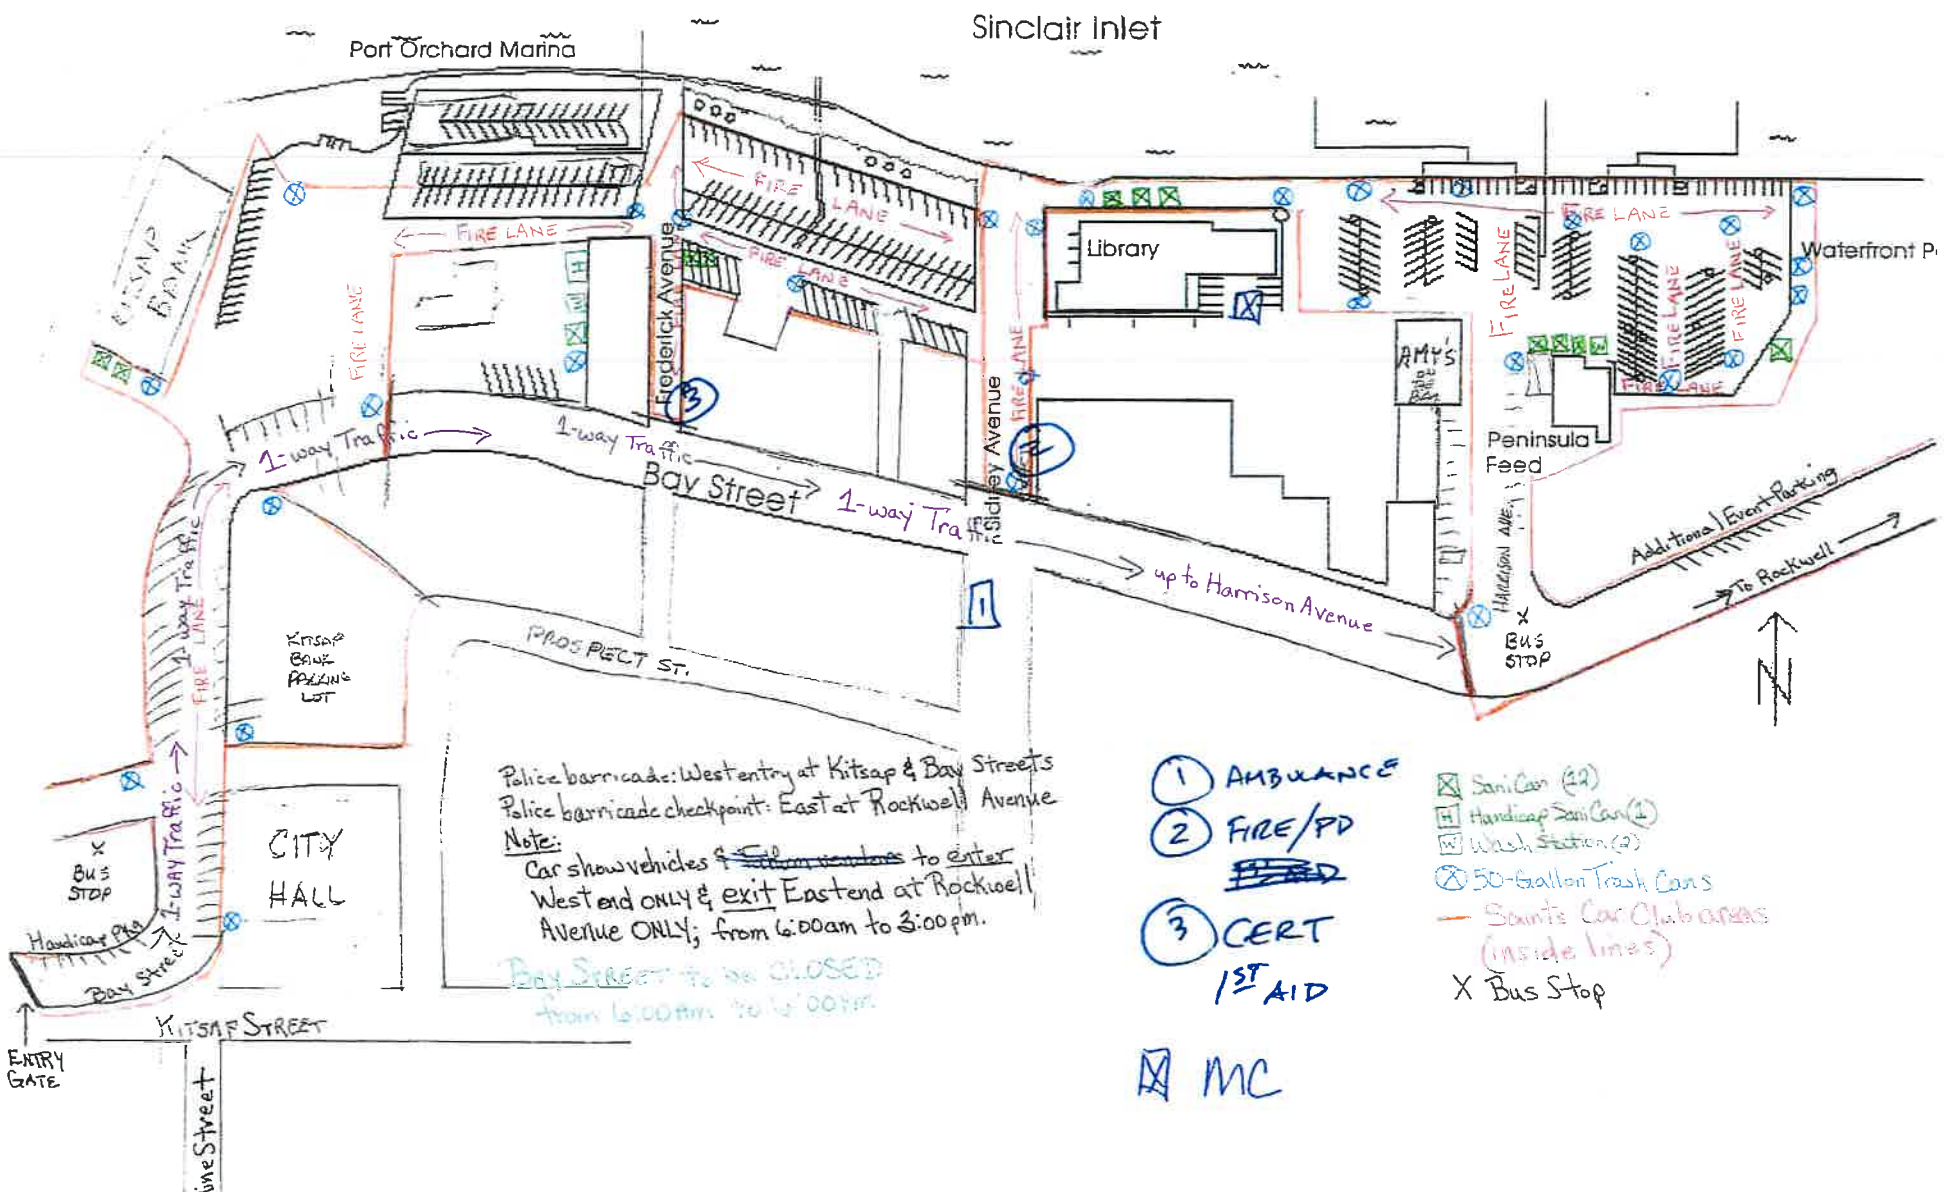 Sinclair Inlet
Port Orchard Marina
KITSAP
BANK
FIRE LANE
FIRE
LANE
FIRE LANE
FIRE LANE
Frederick Avenue
H
W
FIRE LANE
Library
FIRE LANE
Waterfront P
FIRE LANE
FIRE LANE
FIRE LANE
FIRE LANE
AMY'S
ON
THE
BAY
FIRE LANE
Sidney Avenue
3
2
Peninsula
Feed
W
HARRISON AVE.
1-way Traffic
1-way Traffic
Bay Street
1-way Traffic
up to Harrison Avenue
1
Additional Event Parking
To Rockwell
X
BUS
STOP
N
1-way Traffic
FIRE LANE
KITSAP
BANK
PARKING
LOT
PROSPECT ST.
1-WAY Traffic
X
BUS
STOP
CITY
HALL
Handicap Pkg
Bay Street
KITSAP STREET
ENTRY
GATE
ine Street
Police barricade: West entry at Kitsap & Bay Streets
Police barricade checkpoint: East at Rockwell Avenue
Note:
Car show vehicles & to enter
West end ONLY & exit East end at Rockwell
Avenue ONLY; from 6:00am to 3:00pm.
BAY STREET to be CLOSED
from 6:00Am to 6:00Pm
1 AMBULANCE
2 FIRE/PD
3 CERT
1ST AID
MC
SaniCan (12)
H Handicap SaniCan (1)
W Wash Station (2)
50-Gallon Trash Cans
Saints Car Club areas
(inside lines)
X Bus Stop